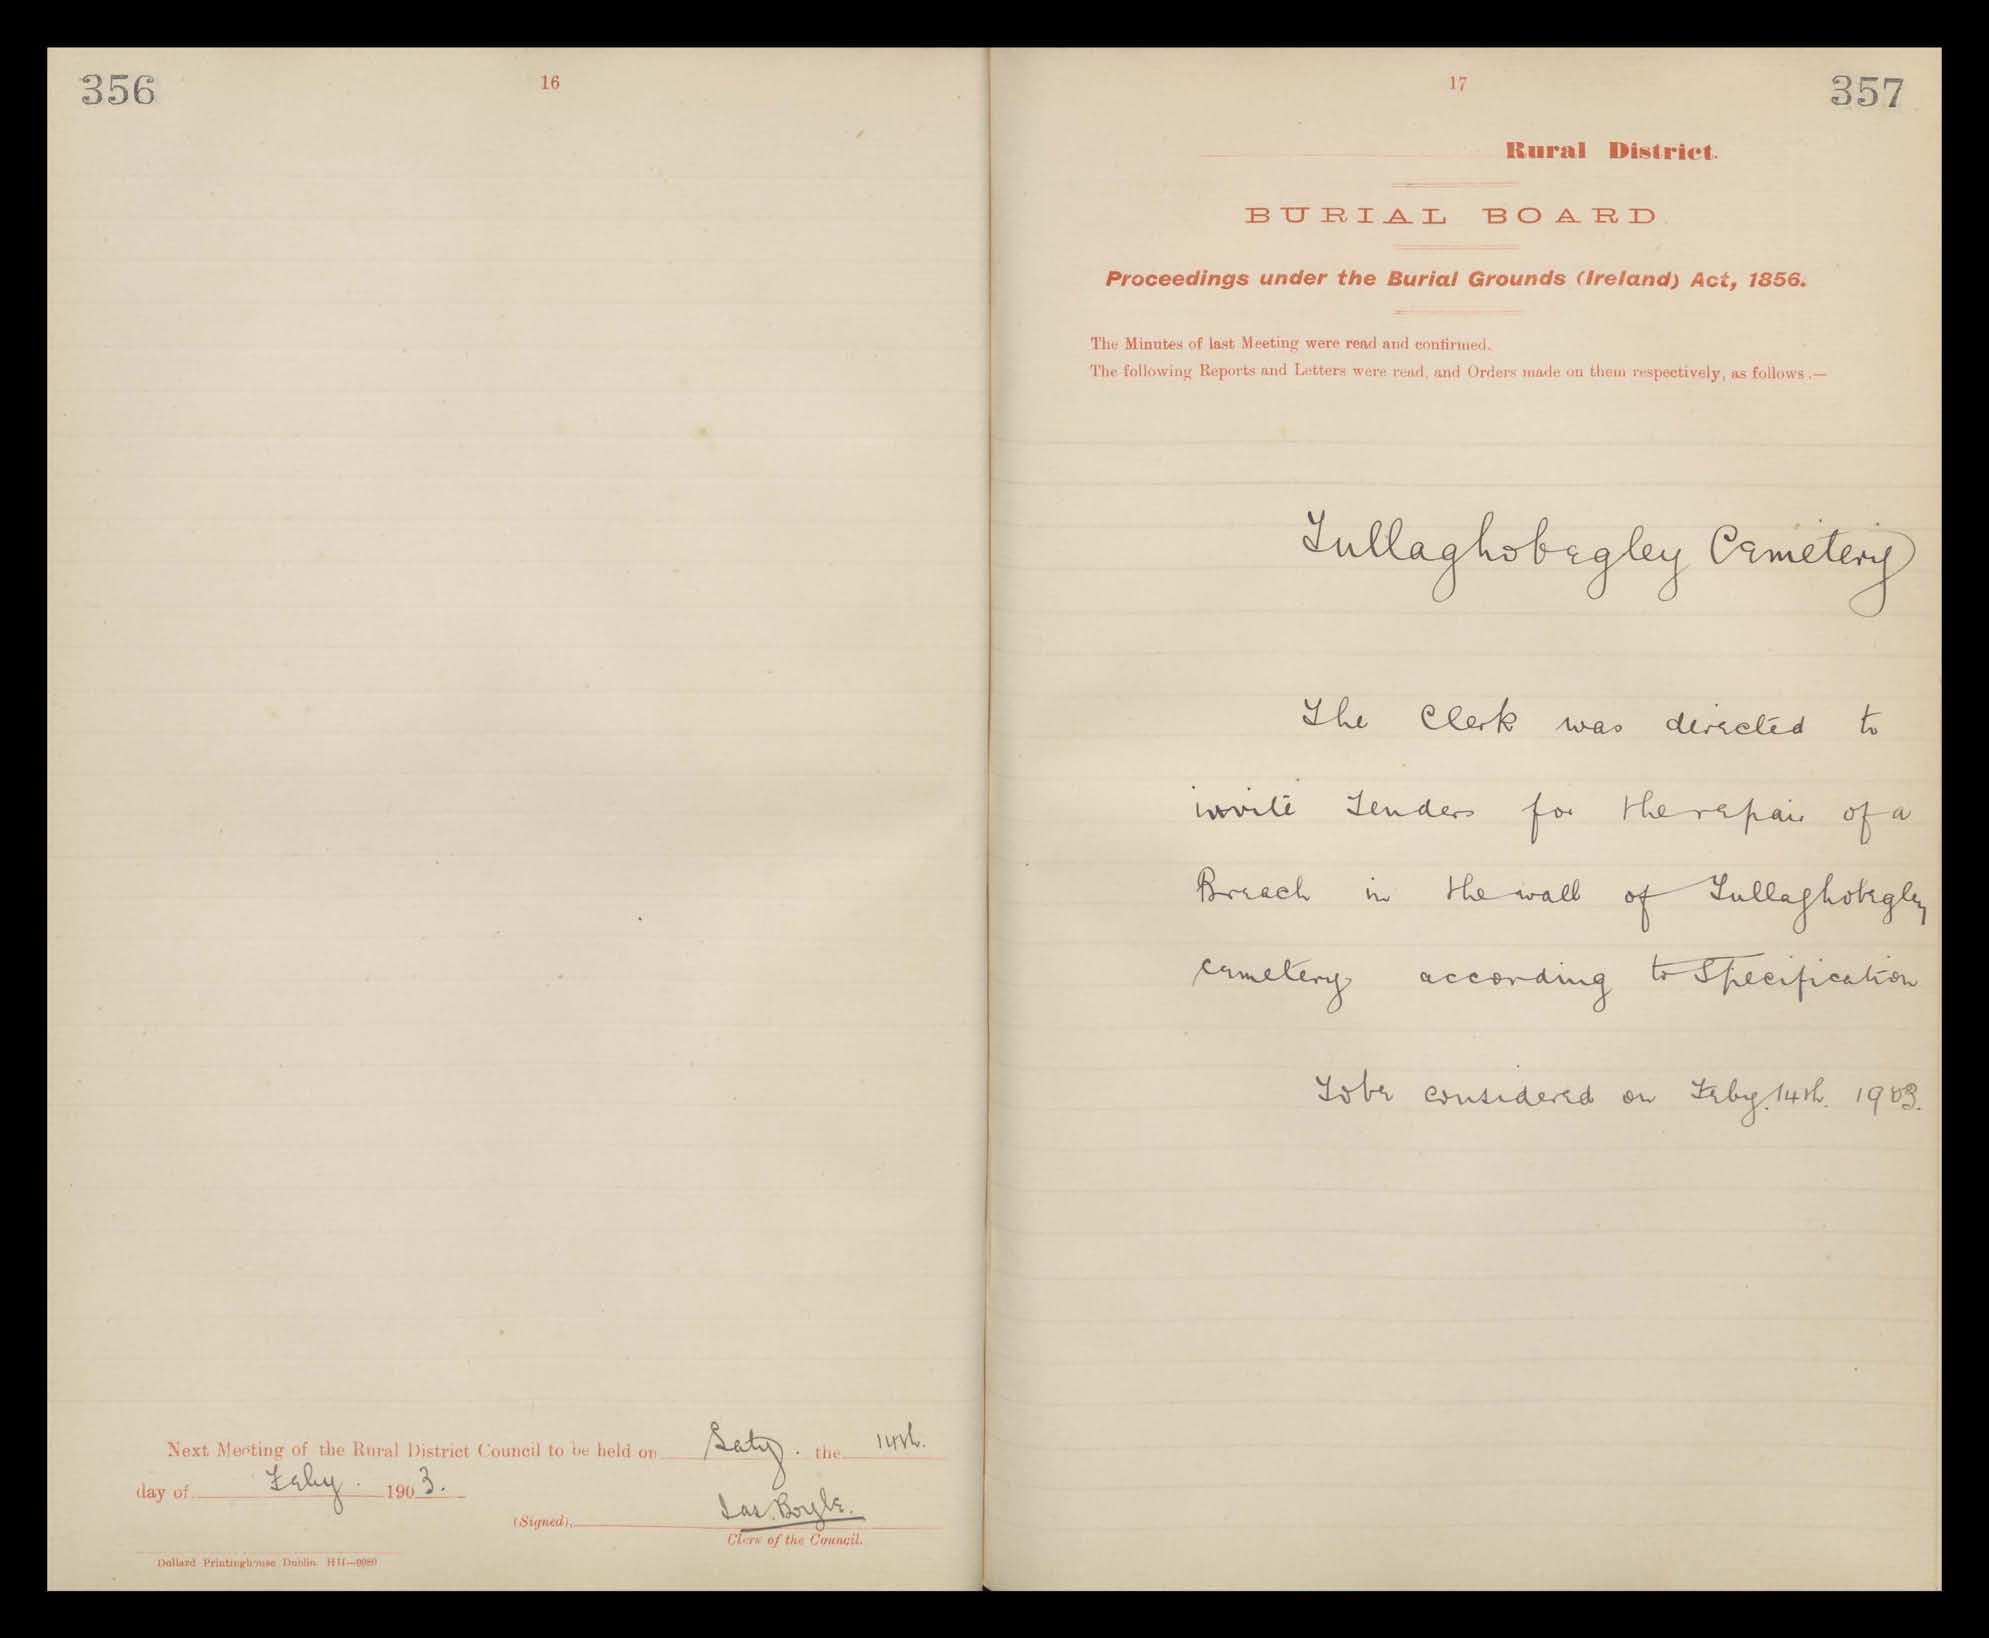 356
16
Next Meeting of the Rural District Council to be held on Saty. the 14th.
day of Feby. 1903.
(Signed), Jas. Boyle.
Clerk of the Council.
Dollard Printinghouse Dublin.
17
357
Rural District.
BURIAL BOARD.
Proceedings under the Burial Grounds (Ireland) Act, 1856.
The Minutes of last Meeting were read and confirmed.
The following Reports and Letters were read, and Orders made on them respectively, as follows.—
Tullaghobegley Cemetery
The Clerk was directed to
invite Tenders for the repair of a
Breach in the wall of Tullaghobegley
cemetery according to Specification
To be considered on Feby. 14th. 1903.